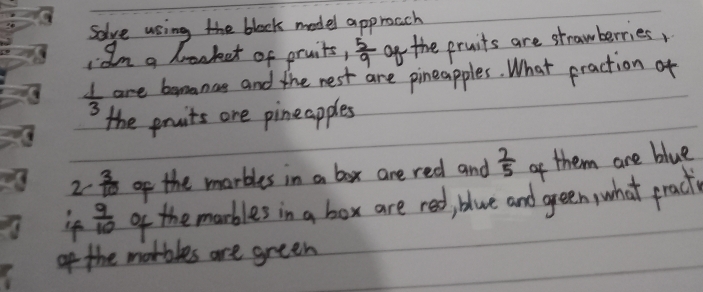 Solve using the block model approach
1. In a basket of fruits, 5/9 of the fruits are strawberries,
1/3 are bananas and the rest are pineapples. What fraction of
the fruits are pineapples
2- 3/10 of the marbles in a box are red and 2/5 of them are blue
if 9/10 of the marbles in a box are red, blue and green, what fracti
of the marbles are green